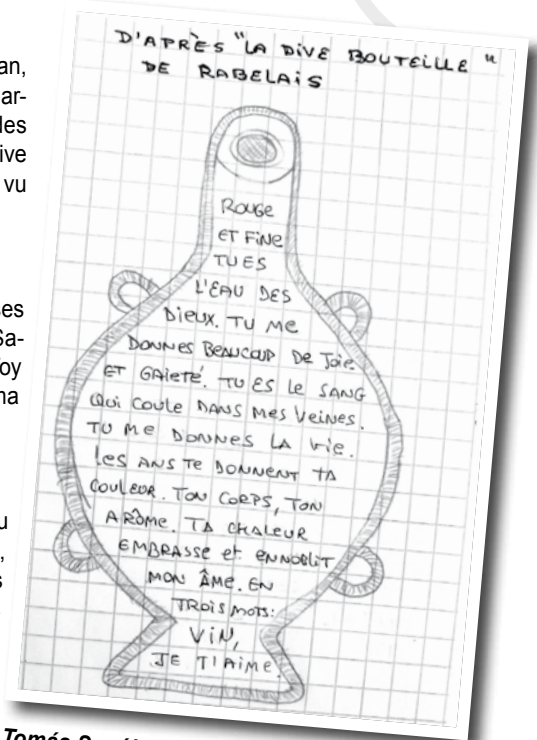 D'APRÈS "LA DIVE BOUTEILLE"
DE RABELAIS
ROUGE
ET FINE
TU ES
L'EAU DES
DIEUX. TU ME
DONNES BEAUCOUP DE JOIE
ET GAIETÉ. TU ES LE SANG
QUI COULE DANS MES VEINES.
TU ME DONNES LA VIE.
LES ANS TE DONNENT TA
COULEUR. TON CORPS, TON
ARÔME. TA CHALEUR
EMBRASSE ET ENNOBLIT
MON ÂME. EN
TROIS MOTS:
VIN,
JE T'AIME.
an,
ar-
des
ive
vu
ses
Sa-
oy
ma
u
,
s
Tomás